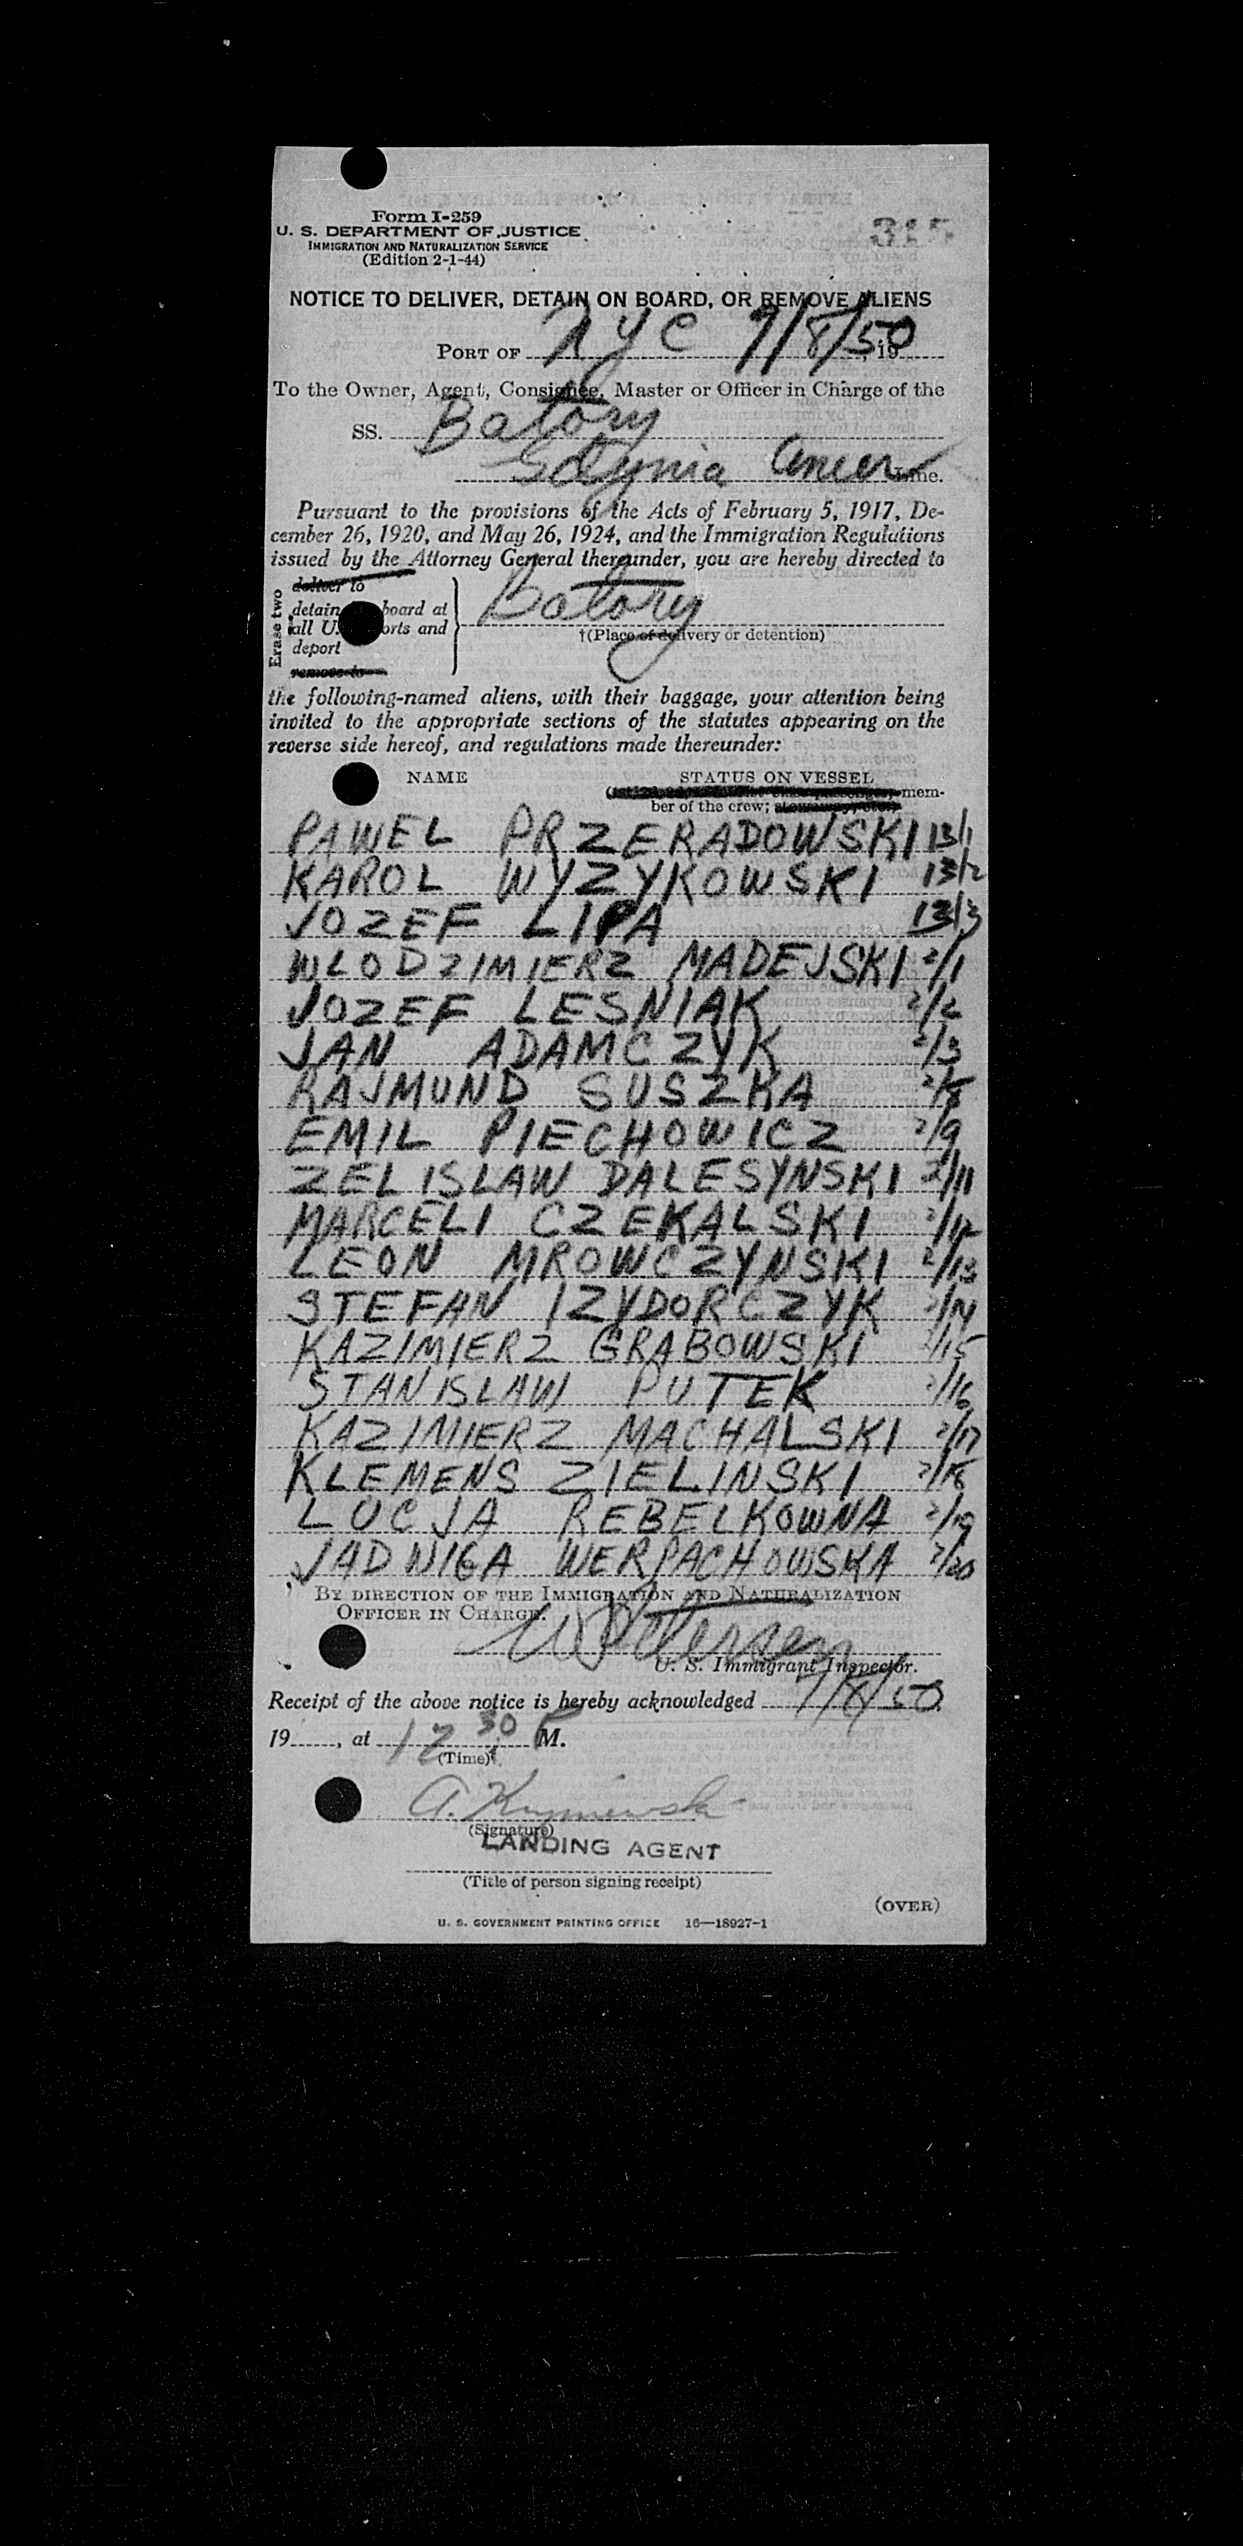 Form I-259
U. S. DEPARTMENT OF JUSTICE
IMMIGRATION AND NATURALIZATION SERVICE
(Edition 2-1-44)
315
NOTICE TO DELIVER, DETAIN ON BOARD, OR REMOVE ALIENS
PORT OF NYC 7/8/50, 19
To the Owner, Agent, Consignee, Master or Officer in Charge of the
SS. Batory
Gdynia Amer Line.
Pursuant to the provisions of the Acts of February 5, 1917, De-
cember 26, 1920, and May 26, 1924, and the Immigration Regulations
issued by the Attorney General thereunder, you are hereby directed to
Erase two
deliver to
detain board at
all U. orts and
deport
remove to
Batory
†(Place of delivery or detention)
the following-named aliens, with their baggage, your attention being
invited to the appropriate sections of the statutes appearing on the
reverse side hereof, and regulations made thereunder:
NAME STATUS ON VESSEL
mem-
ber of the crew;
PAWEL PRZERADOWSKI 13/1
KAROL WYZYKOWSKI 13/2
JOZEF LIPA 13/3
WLODZIMIERZ MADEJSKI 2/1
JOZEF LESNIAK 2/2
JAN ADAMCZYK 2/3
RAJMUND SUSZKA 2/8
EMIL PIECHOWICZ 2/9
ZELISLAW DALESYNSKI 2/11
MARCELI CZEKALSKI 2/12
LEON MROWCZYNSKI 2/13
STEFAN IZYDORCZYK 2/14
KAZIMIERZ GRABOWSKI 2/15
STANISLAW PUTEK 2/16
KAZIMIERZ MACHALSKI 2/17
KLEMENS ZIELINSKI 2/18
LUCJA REBELKOWNA 2/19
JADWIGA WERPACHOWSKA 2/20
BY DIRECTION OF THE IMMIGRATION AND NATURALIZATION
OFFICER IN CHARGE.
U. S. Immigrant Inspector.
Receipt of the above notice is hereby acknowledged 7/8/50
19, at 12 30 P M.
(Time)
A.
(Signature)
LANDING AGENT
(Title of person signing receipt)
(OVER)
U. S. GOVERNMENT PRINTING OFFICE 16—18927-1